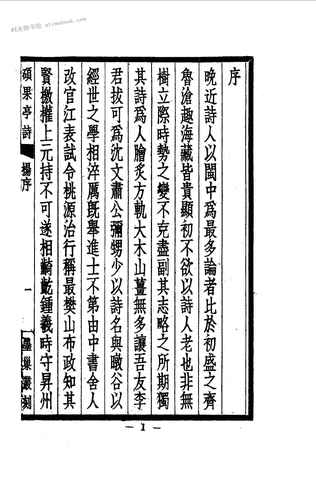 序
晚近詩人以閩中爲最多論者比於初盛之齊
魯滄趣海藏皆貴顯初不欲以詩人老也非無
樹立際時勢之變不克盡副其志略之所期獨
其詩爲人膾炙方軌大木山薑無多讓吾友李
君拔可爲沈文肅公彌甥少以詩名與暾谷以
經世之學相淬厲既舉進士不第由中書舍人
改官江表試令桃源治行稱最樊山布政知其
賢檄攉上元持不可遂相齮齕鍾義時守昇州
碩果亭詩
楊序
一
墨巢叢刻
— 1 —